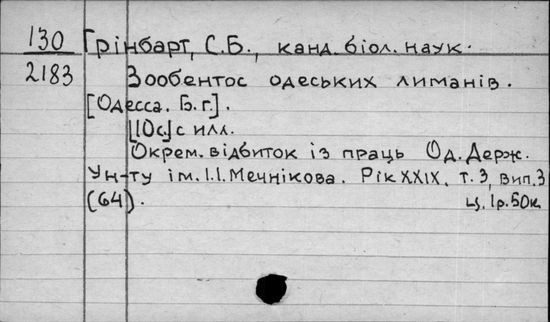 130 Грінбарт, С.Б., канд. біол. наук.
2183 Зообентос одеських лиманів.
[Одесса. Б. г.].
[10с.] с илл.
Окрем. відбиток із праць Од. Держ.
Ун-ту ім. І.І. Мечнікова. Рік XXIX, т. 3, вип. 3
(64). ц. 1р. 50к